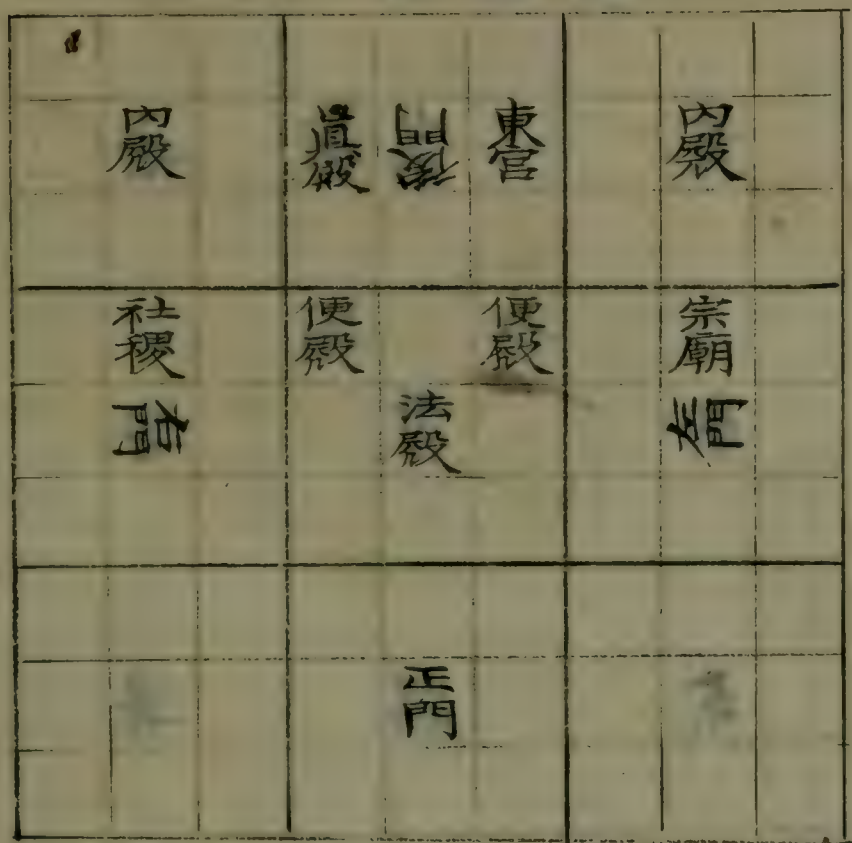 內殿
東宮
後門
殿
內殿
宗廟
左門
便殿
法殿
便殿
社稷
右門
正門